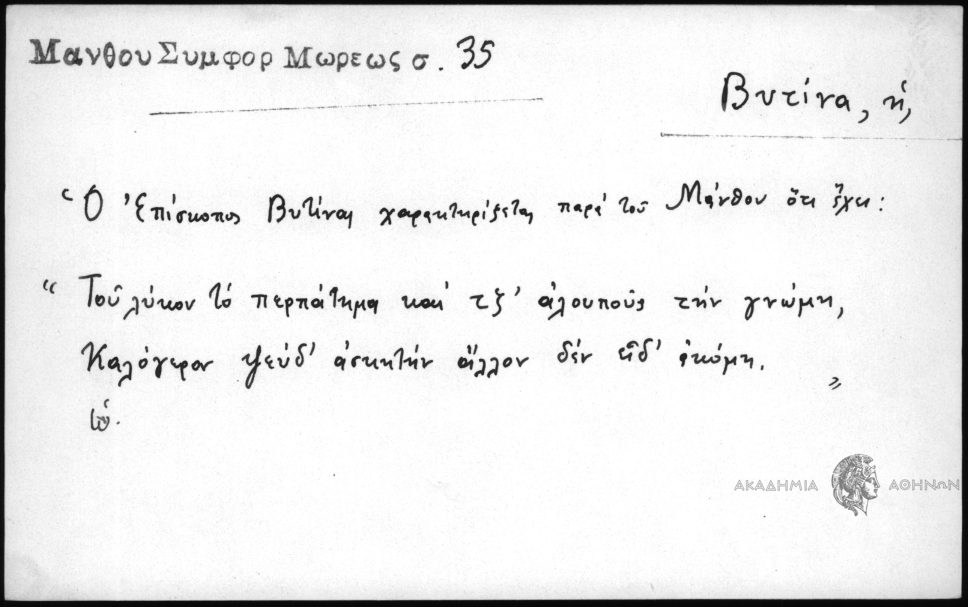 Μανθου Συμφορ Μωρεως σ. 35
Βυτίνα, ἡ,
Ὁ Ἐπίσκοπος Βυτίνας χαρακτηρίζεται παρὰ τοῦ Μάνθου ὅτι ἔχει:
“ Τοῦ λύκου τὸ περπάτημα καὶ τζ' ἀλουποῦς τὴν γνώμη,
Καλόγερον ψεύδ' ἀσκητὴν ἄλλον δὲν εἶδ' ἀκόμη. ”
ΑΚΑΔΗΜΙΑ ΑΘΗΝΩΝ